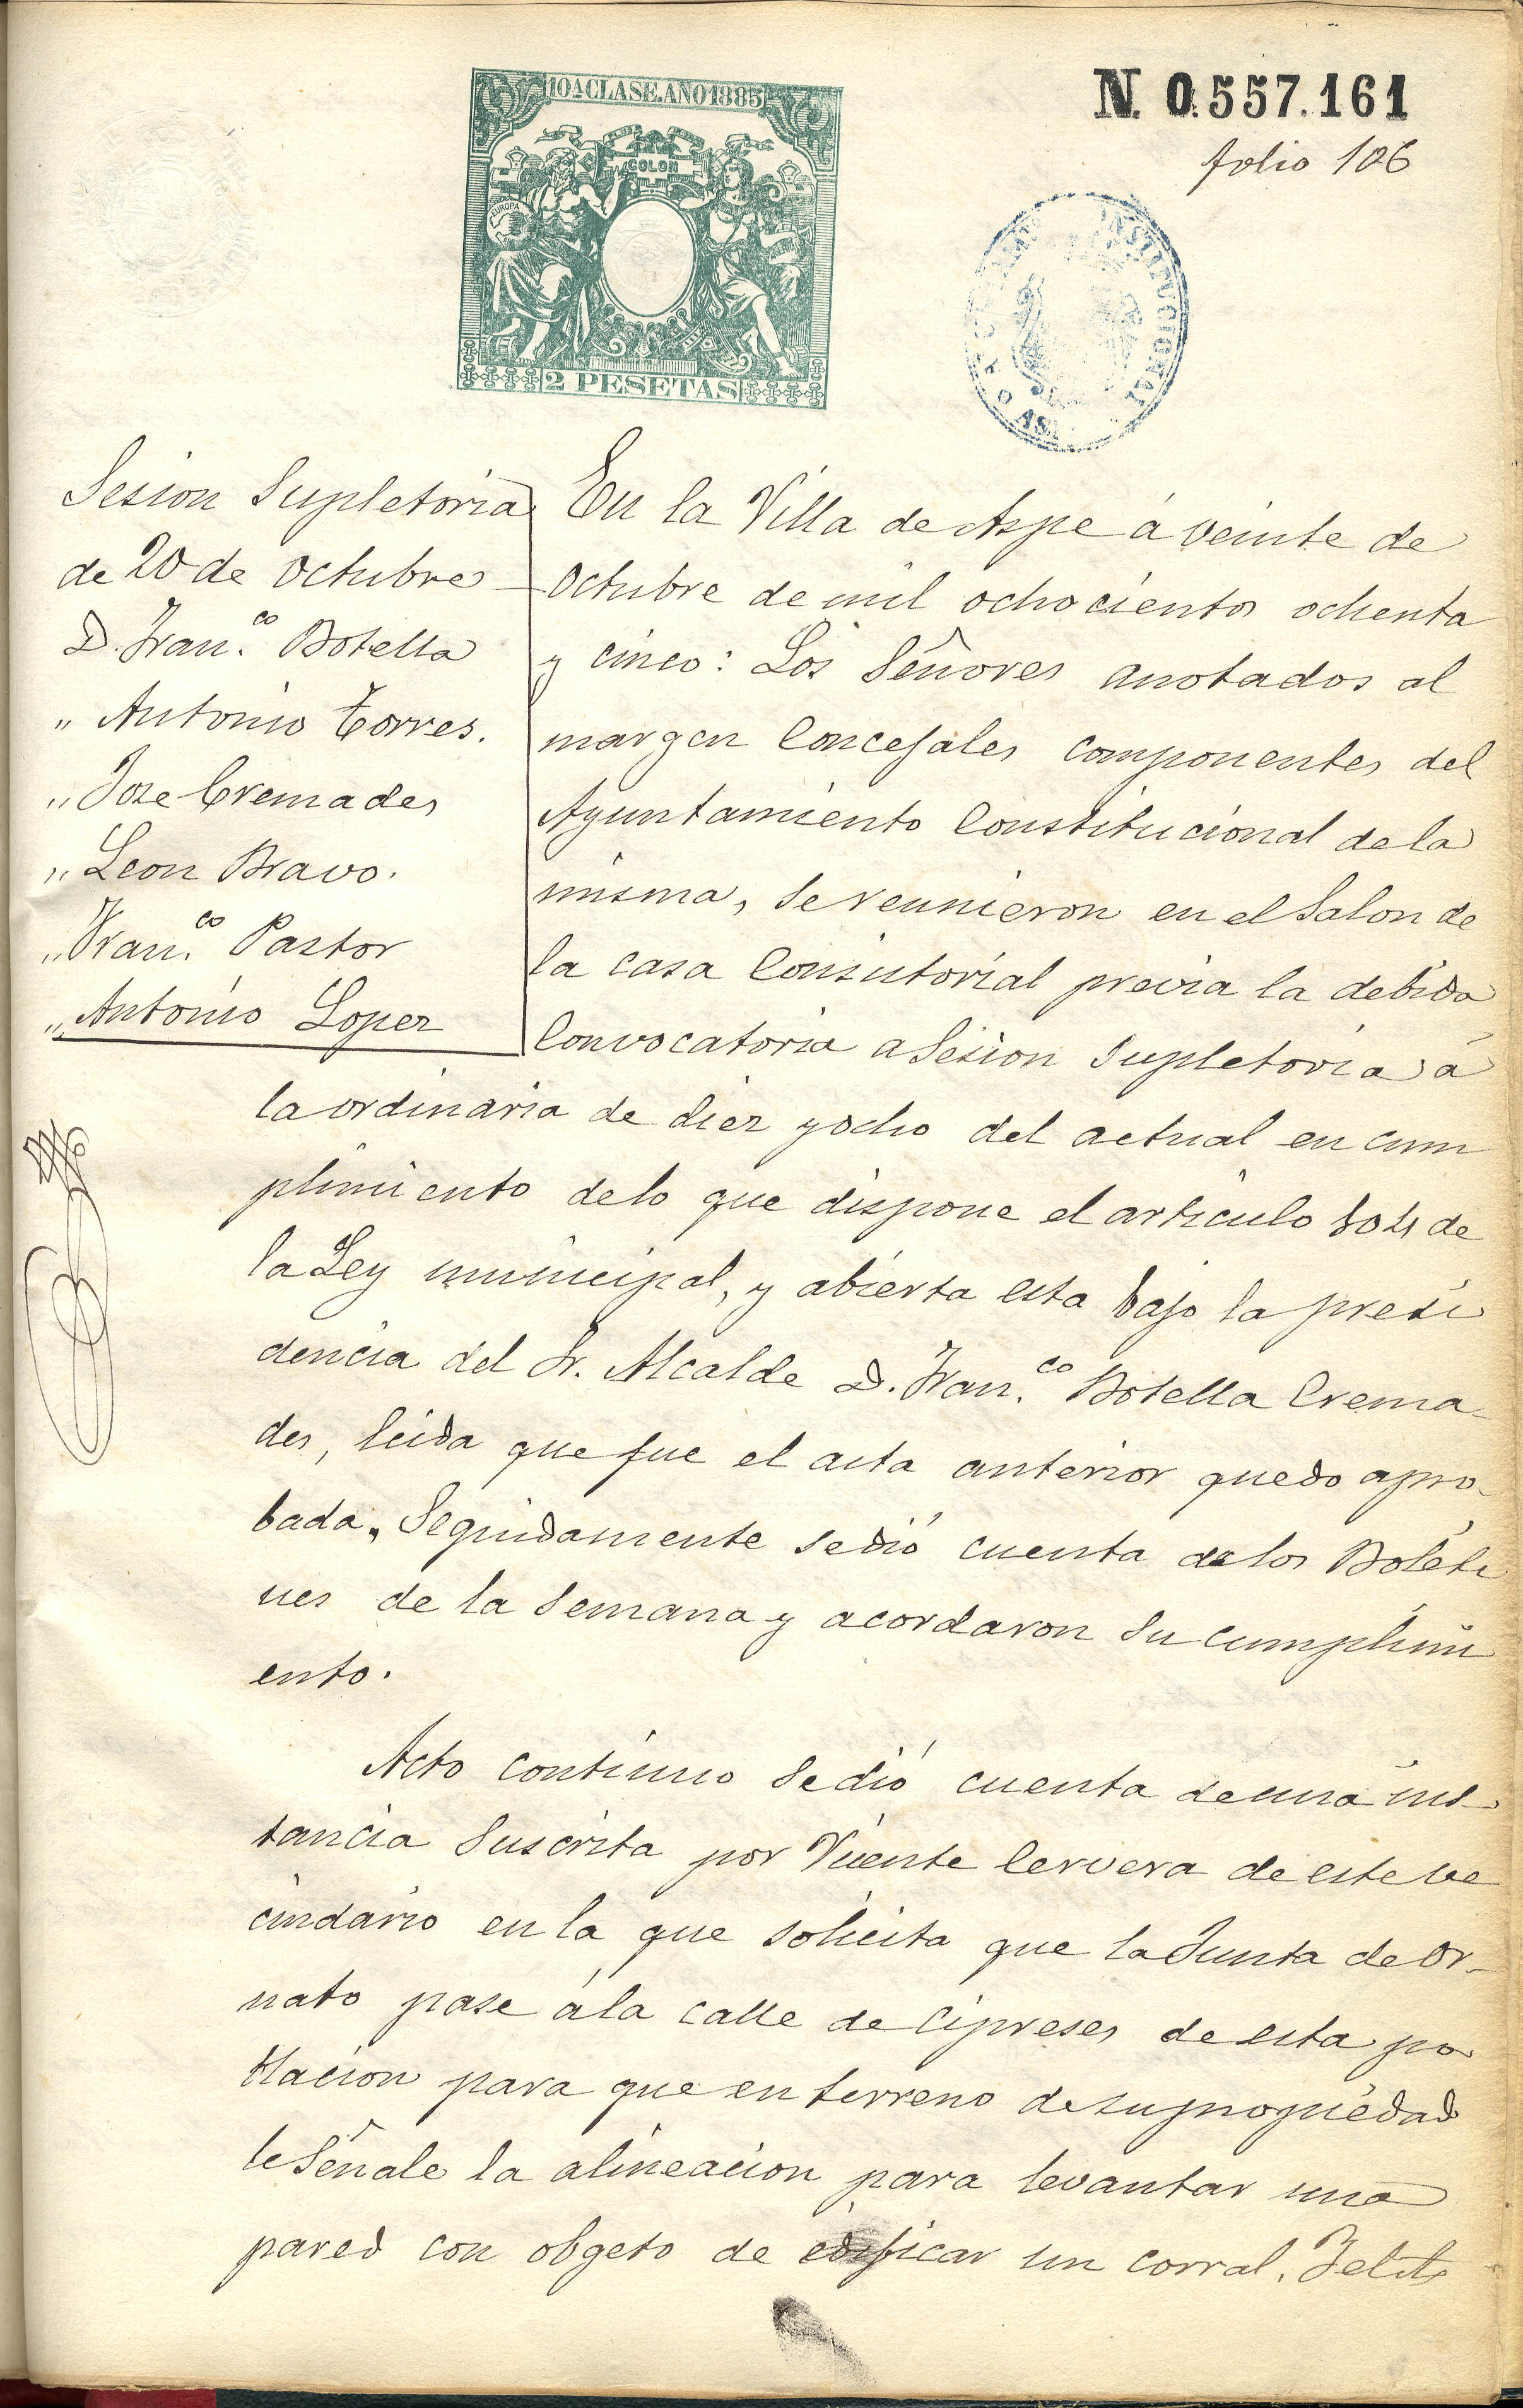 10ª CLASE. AÑO 1885
COLON
EUROPA
2 PESETAS
N. 0.557.161
folio 106
CONSTITUCIONAL
Sesion Supletoria
de 20 de Octubre
D. Fran.co Botella
" Antonio Torres.
" Jose Cremades
" Leon Bravo.
" Fran.co Pastor
" Antonio Lopez
En la Villa de Aspe á veinte de
Octubre de mil ochocientos ochenta
y cinco: Los Señores anotados al
margen Concejales componentes del
Ayuntamiento Constitucional de la
misma, se reunieron en el Salon de
la casa Consistorial previa la debida
Convocatoria a Sesion Supletoria á
la ordinaria de diez y ocho del actual en cum
plimiento de lo que dispone el articulo 104 de
la Ley municipal, y abierta esta bajo la presi
dencia del Sr. Alcalde D. Fran.co Botella Crema-
des, leida que fue el acta anterior quedo apro-
bada. Seguidamente se dió cuenta de los Boleti
nes de la Semana y acordaron su cumplimi
ento.
Acto continuo se dió cuenta de una ins-
tancia suscrita por Vicente Cervera de este ve
cindario en la que solicita que la Junta de Or-
nato pase á la calle de Cipreses de esta po
blacion para que en terreno de su propiedad
le señale la alineacion para levantar una
pared con obgeto de edificar un corral.